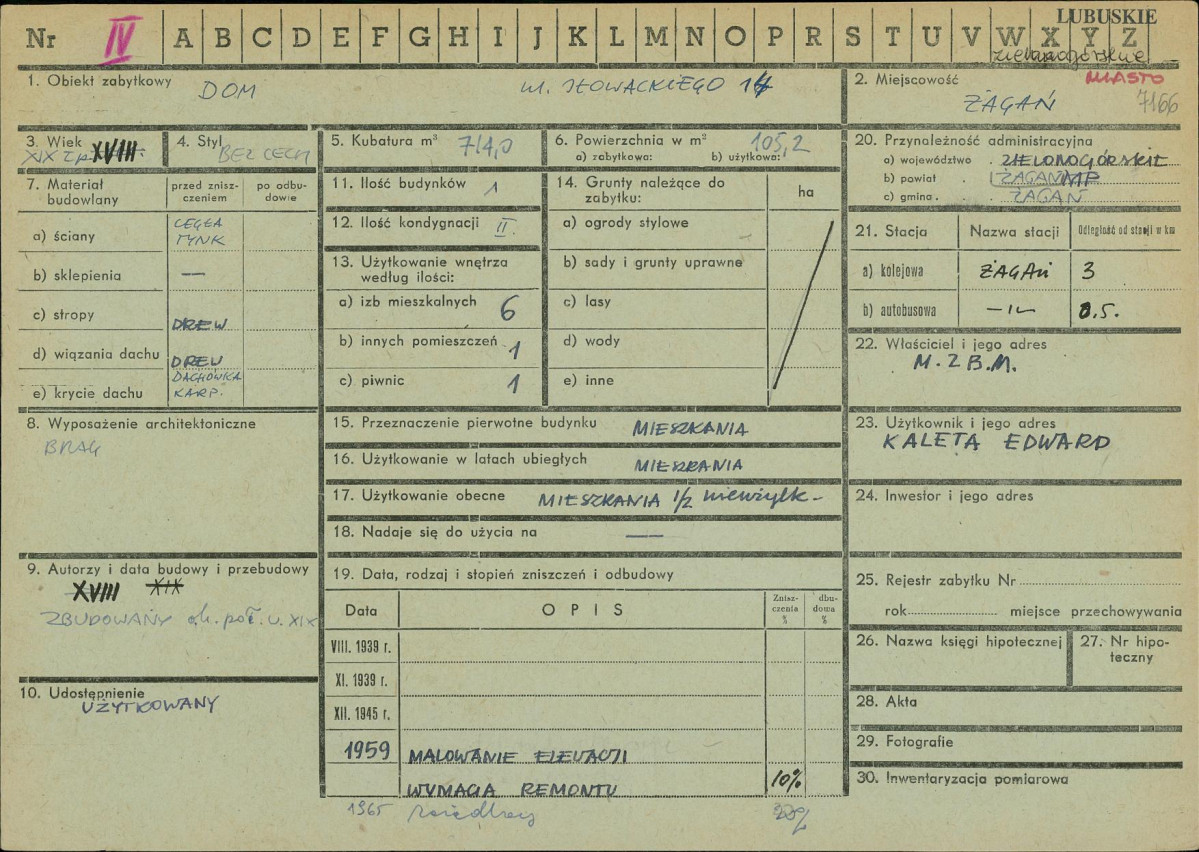 Nr IV A B C D E F G H I J K L M N O P R S T U V W X Y Z
LUBUSKIE
zielonogórskie
1. Obiekt zabytkowy DOM ul. SŁOWACKIEGO 14
2. Miejscowość ŻAGAŃ
MIASTO
7166
3. Wiek XVIII
4. Styl BEZ CECH
5. Kubatura m³ 714,0
6. Powierzchnia w m²
a) zabytkowa: b) użytkowa: 105,2
7. Materiał budowlany
przed zniszczeniem
po odbudowie
a) ściany CEGŁA TYNK
b) sklepienia —
c) stropy DREW
d) wiązania dachu DREW
e) krycie dachu DACHÓWKA KARP.
8. Wyposażenie architektoniczne
BRAK
9. Autorzy i data budowy i przebudowy
XVIII XIX
ZBUDOWANY ok. poł. w. XIX
10. Udostępnienie
UŻYTKOWANY
11. Ilość budynków 1
12. Ilość kondygnacji II
13. Użytkowanie wnętrza
według ilości:
a) izb mieszkalnych 6
b) innych pomieszczeń 1
c) piwnic 1
14. Grunty należące do
zabytku:
ha
a) ogrody stylowe
b) sady i grunty uprawne
c) lasy
d) wody
e) inne
15. Przeznaczenie pierwotne budynku MIESZKANIA
16. Użytkowanie w latach ubiegłych MIESZKANIA
17. Użytkowanie obecne MIESZKANIA 1/2
18. Nadaje się do użycia na —
19. Data, rodzaj i stopień zniszczeń i odbudowy
Data OPIS Zniszczenia % dbudowa %
VIII. 1939 r.
XI. 1939 r.
XII. 1945 r.
1959 MALOWANIE ELEWACJI
WYMAGA REMONTU 10%
1965
20. Przynależność administracyjna
a) województwo ZIELONOGÓRSKIE
b) powiat ŻAGAŃ MP
c) gmina ŻAGAŃ
21. Stacja Nazwa stacji Odległość od stacji w km
a) kolejowa ŻAGAŃ 3
b) autobusowa —"— 0.5.
22. Właściciel i jego adres
M.Z.B.M.
23. Użytkownik i jego adres
KALETA EDWARD
24. Inwestor i jego adres
25. Rejestr zabytku Nr
rok miejsce przechowywania
26. Nazwa księgi hipotecznej
27. Nr hipoteczny
28. Akta
29. Fotografie
30. Inwentaryzacja pomiarowa